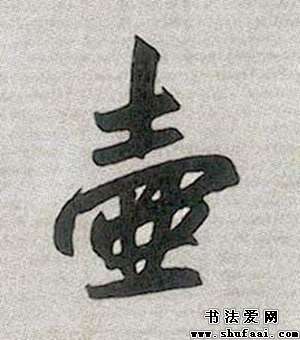 壺
书法爱网
www.shufaai.com